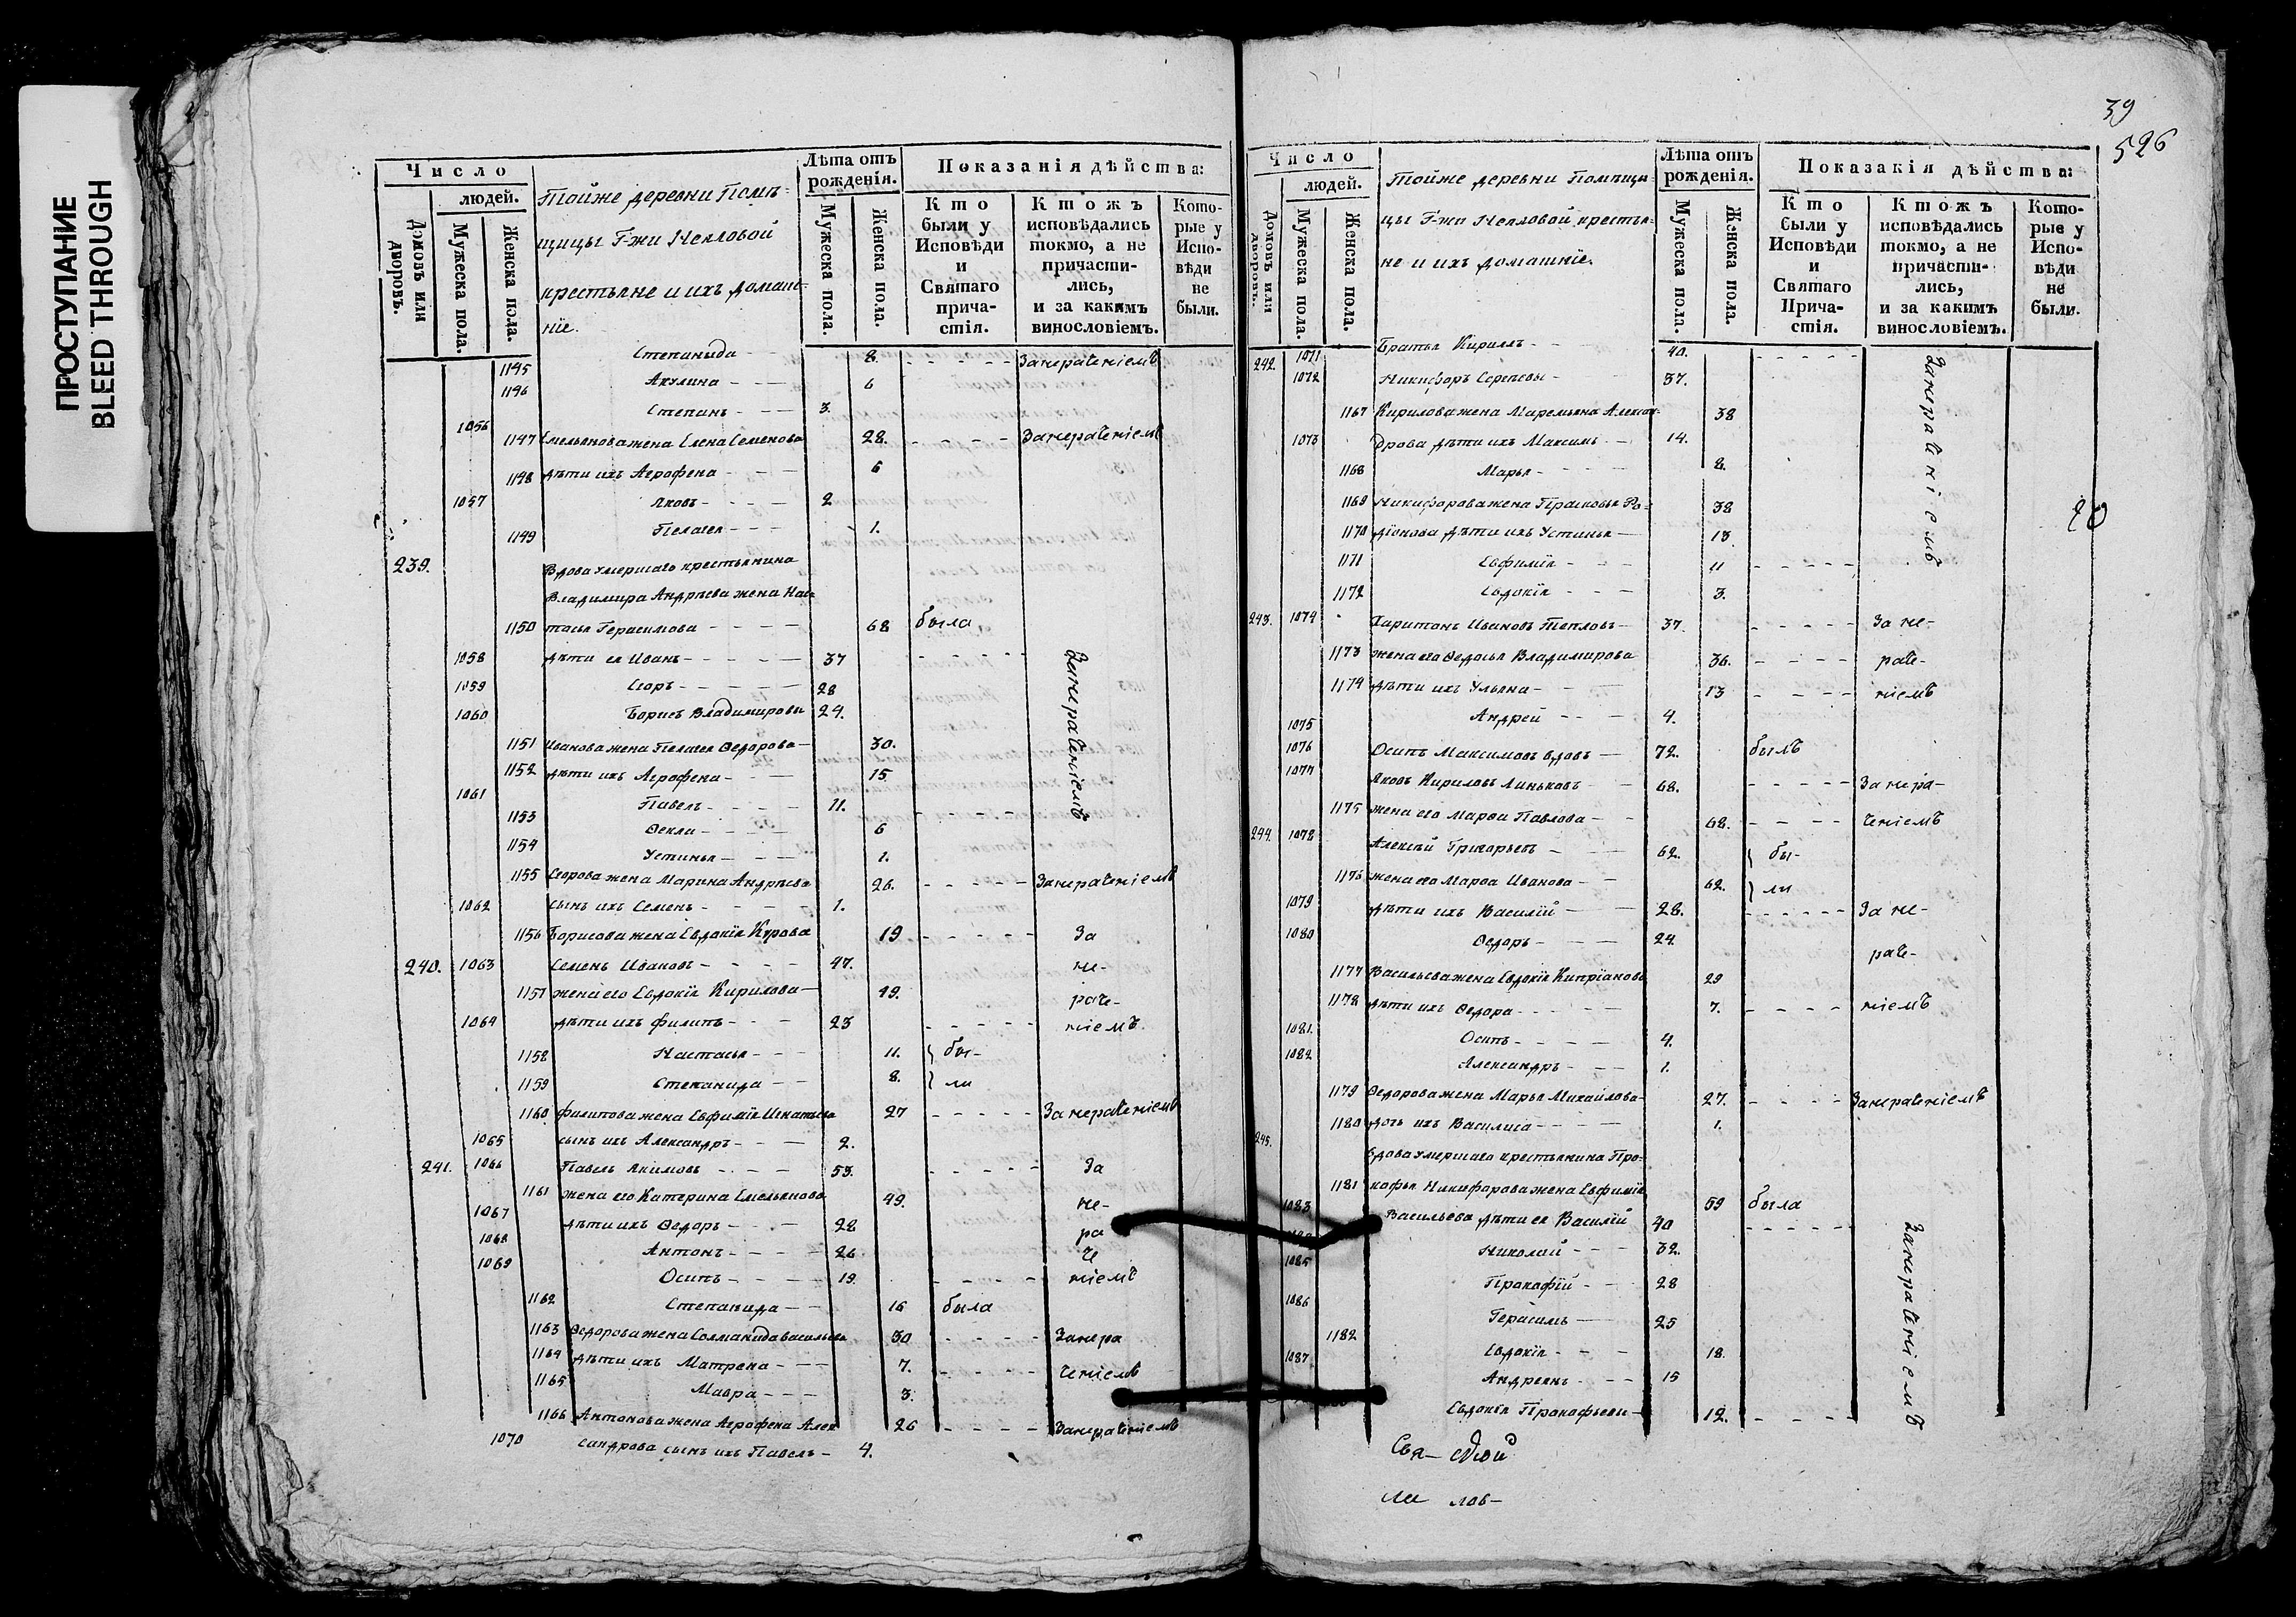 ПРОСТУПАНИЕ
BLEED THROUGH
39
526
20
Число
людей.
Домовъ или дворовъ.
Мужеска пола.
Женска пола.
Тойже деревни Помѣ-
щицы Г-жи
крестьяне и ихъ домаш-
нїе.
Лѣта отъ рожденїя.
Мужеска пола.
Женска пола.
Показанїя дѣйства:
Кто были у Исповѣди и Святаго причастїя.
Ктожъ исповѣдались токмо, а не причастились, и за какимъ винословїемъ.
Которые у Исповѣди не были.
1145 Степанида - - 8. - - - - Занераченіемъ
1146 Акулина - - - 6
1056 Степанъ - - - 3.
1147 Емельянова жена Елена Семенова 28. - - - - Занераченіемъ
1148 дѣти ихъ Агрофена - - - 6
1057 Яковъ - - - - 2
1149 Пелагея - - - 1.
239. Вдова умершаго крестьянина
Владимира Андрѣева жена Нас-
1150 тасья Герасимова - - - - 68 была
1058 дѣти ея Иванъ - - - - - 37 - - - - - Занераченіемъ
1059 Егоръ - - - - - 28
1060 Борисъ Владимировы 24.
1151 Иванова жена Пелагея Ѳедорова - 30.
1152 дѣти ихъ Агрофена - - - 15
1061 Павелъ - - - - 11.
1153 Ѳекла - - - - 6
1154 Устинья - - - 1.
1155 Егорова жена Марина Андрѣева 26. - - - - - Занераченіемъ
1062 сынъ ихъ Семенъ - - - - 1.
1156 Борисова жена Евдокїя Курова 19 - - - - - За
240. 1063 Семенъ Ивановъ - - - - 47. не-
1157 жена его Евдокїя Кирилова - 49. раче-
1064 дѣти ихъ Филипъ - - - 23 - - - - - ніемъ.
1158 Настасья - - - 11. бы-
1159 Степанида - - 8. ли
1160 Филипова жена Евфимїя Игнатьева 27 - - - - - Занераченіемъ
1065 сынъ ихъ Александръ - - - 2.
241. 1066 Павелъ Якимовъ - - - - 53. - - - - - За
1161 жена его Катерина Емельянова 49. не-
1067 дѣти ихъ Ѳедоръ - - - 28 ра
1068 Антонъ - - - - 26 че
1069 Осипъ - - - - 19 - - - - - ніемъ
1162 Степанида - - 16 была
1163 Ѳедорова жена Соломанида Васильева 30 - - - - Занера
1164 дѣти ихъ Матрена - - - 7. - - - - ченіемъ
1165 Мавра - - - 3.
1166 Антонова жена Агрофена Алек 26 - - - - Занераченіемъ
1070 сандрова сынъ ихъ Павелъ - 4.
Число
людей.
Домовъ или дворовъ.
Мужеска пола.
Женска пола.
Тойже деревни Помѣщи
цы Г-жи крестья-
не и ихъ домашнїе.
Лѣта отъ рожденїя.
Мужеска пола.
Женска пола.
Показанїя дѣйства:
Кто были у Исповѣди и Святаго Причастїя.
Ктожъ исповѣдались токмо, а не причастились, и за какимъ винословїемъ.
Которые у Исповѣди не были.
242. 1071 Братья Кирилъ - - - 40. - - - - - Занераченіемъ
1072 Никифоръ Сергеевы - 37.
1167 Кирилова жена Маремьяна Алексан- 38
1073 дрова дѣти ихъ Максимъ - - 14.
1168 Марья - - - - 8.
1169 Никифорова жена Прасковья Ро- 38
1170 дїонова дѣти ихъ Устинья - 13
1171 Евфимїя - - - 11 - - - - -
1172 Евдокїя - - - 3.
243. 1074 Харитонъ Ивановъ Тепловъ - 37. - - - - - За не-
1173 жена его Ѳедосья Владимирова 36. - - - - раче-
1174 дѣти ихъ Ульяна - - - 13 - - - - ніемъ
1075 Андрей - - - 4.
1076 Осипъ Максимовъ вдовъ - 72. былъ
1077 Яковъ Кириловъ Линьковъ - 68. - - - - - За нера-
1175 жена его Марѳа Павлова - - 68. - - - - ченіемъ
244. 1078 Алексѣй Григорьевъ - - 62. бы-
1176 жена его Марѳа Иванова - - 62. ли
1079 дѣти ихъ Василїй - - - 28. - - - - - За не-
1080 Ѳедоръ - - - - 24 раче-
1177 Васильева жена Евдокїя Кипрїанова 29
1178 дѣти ихъ Ѳедора - - - - - 7. - - - - ніемъ
1081. Осипъ - - - - 4.
1082 Александръ - - - 1.
1179 Ѳедорова жена Марья Михайлова - 27. - - - - Занераченіемъ
1180 дочь ихъ Василиса - - - - 1.
245. Вдова умершаго крестьянина Про-
1181 кофья Никифорова жена Евфимїя 59 была
1083 Васильева дѣти ея Василїй 40 - - - - - Занераченіемъ
Николай - - - 32.
1085 Прокофїй - - 28
1086 Герасимъ - - 25
1182 Евдокїя - - - 18.
1087 Андреянъ - - - 15
Евдокья Прокофьевы - 12. - - - -
Свя-
ли лов-